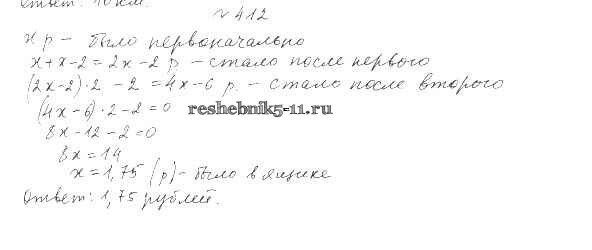 Ответ: 10 км.
№ 412
x р – было первоначально
x + x – 2 = 2x – 2 р – стало после первого
(2x – 2) · 2 – 2 = 4x – 6 р. – стало после второго
(4x – 6) · 2 – 2 = 0
reshebnik5-11.ru
8x – 12 – 2 = 0
8x = 14
x = 1,75 (р) – было в ящике
Ответ: 1,75 рублей.